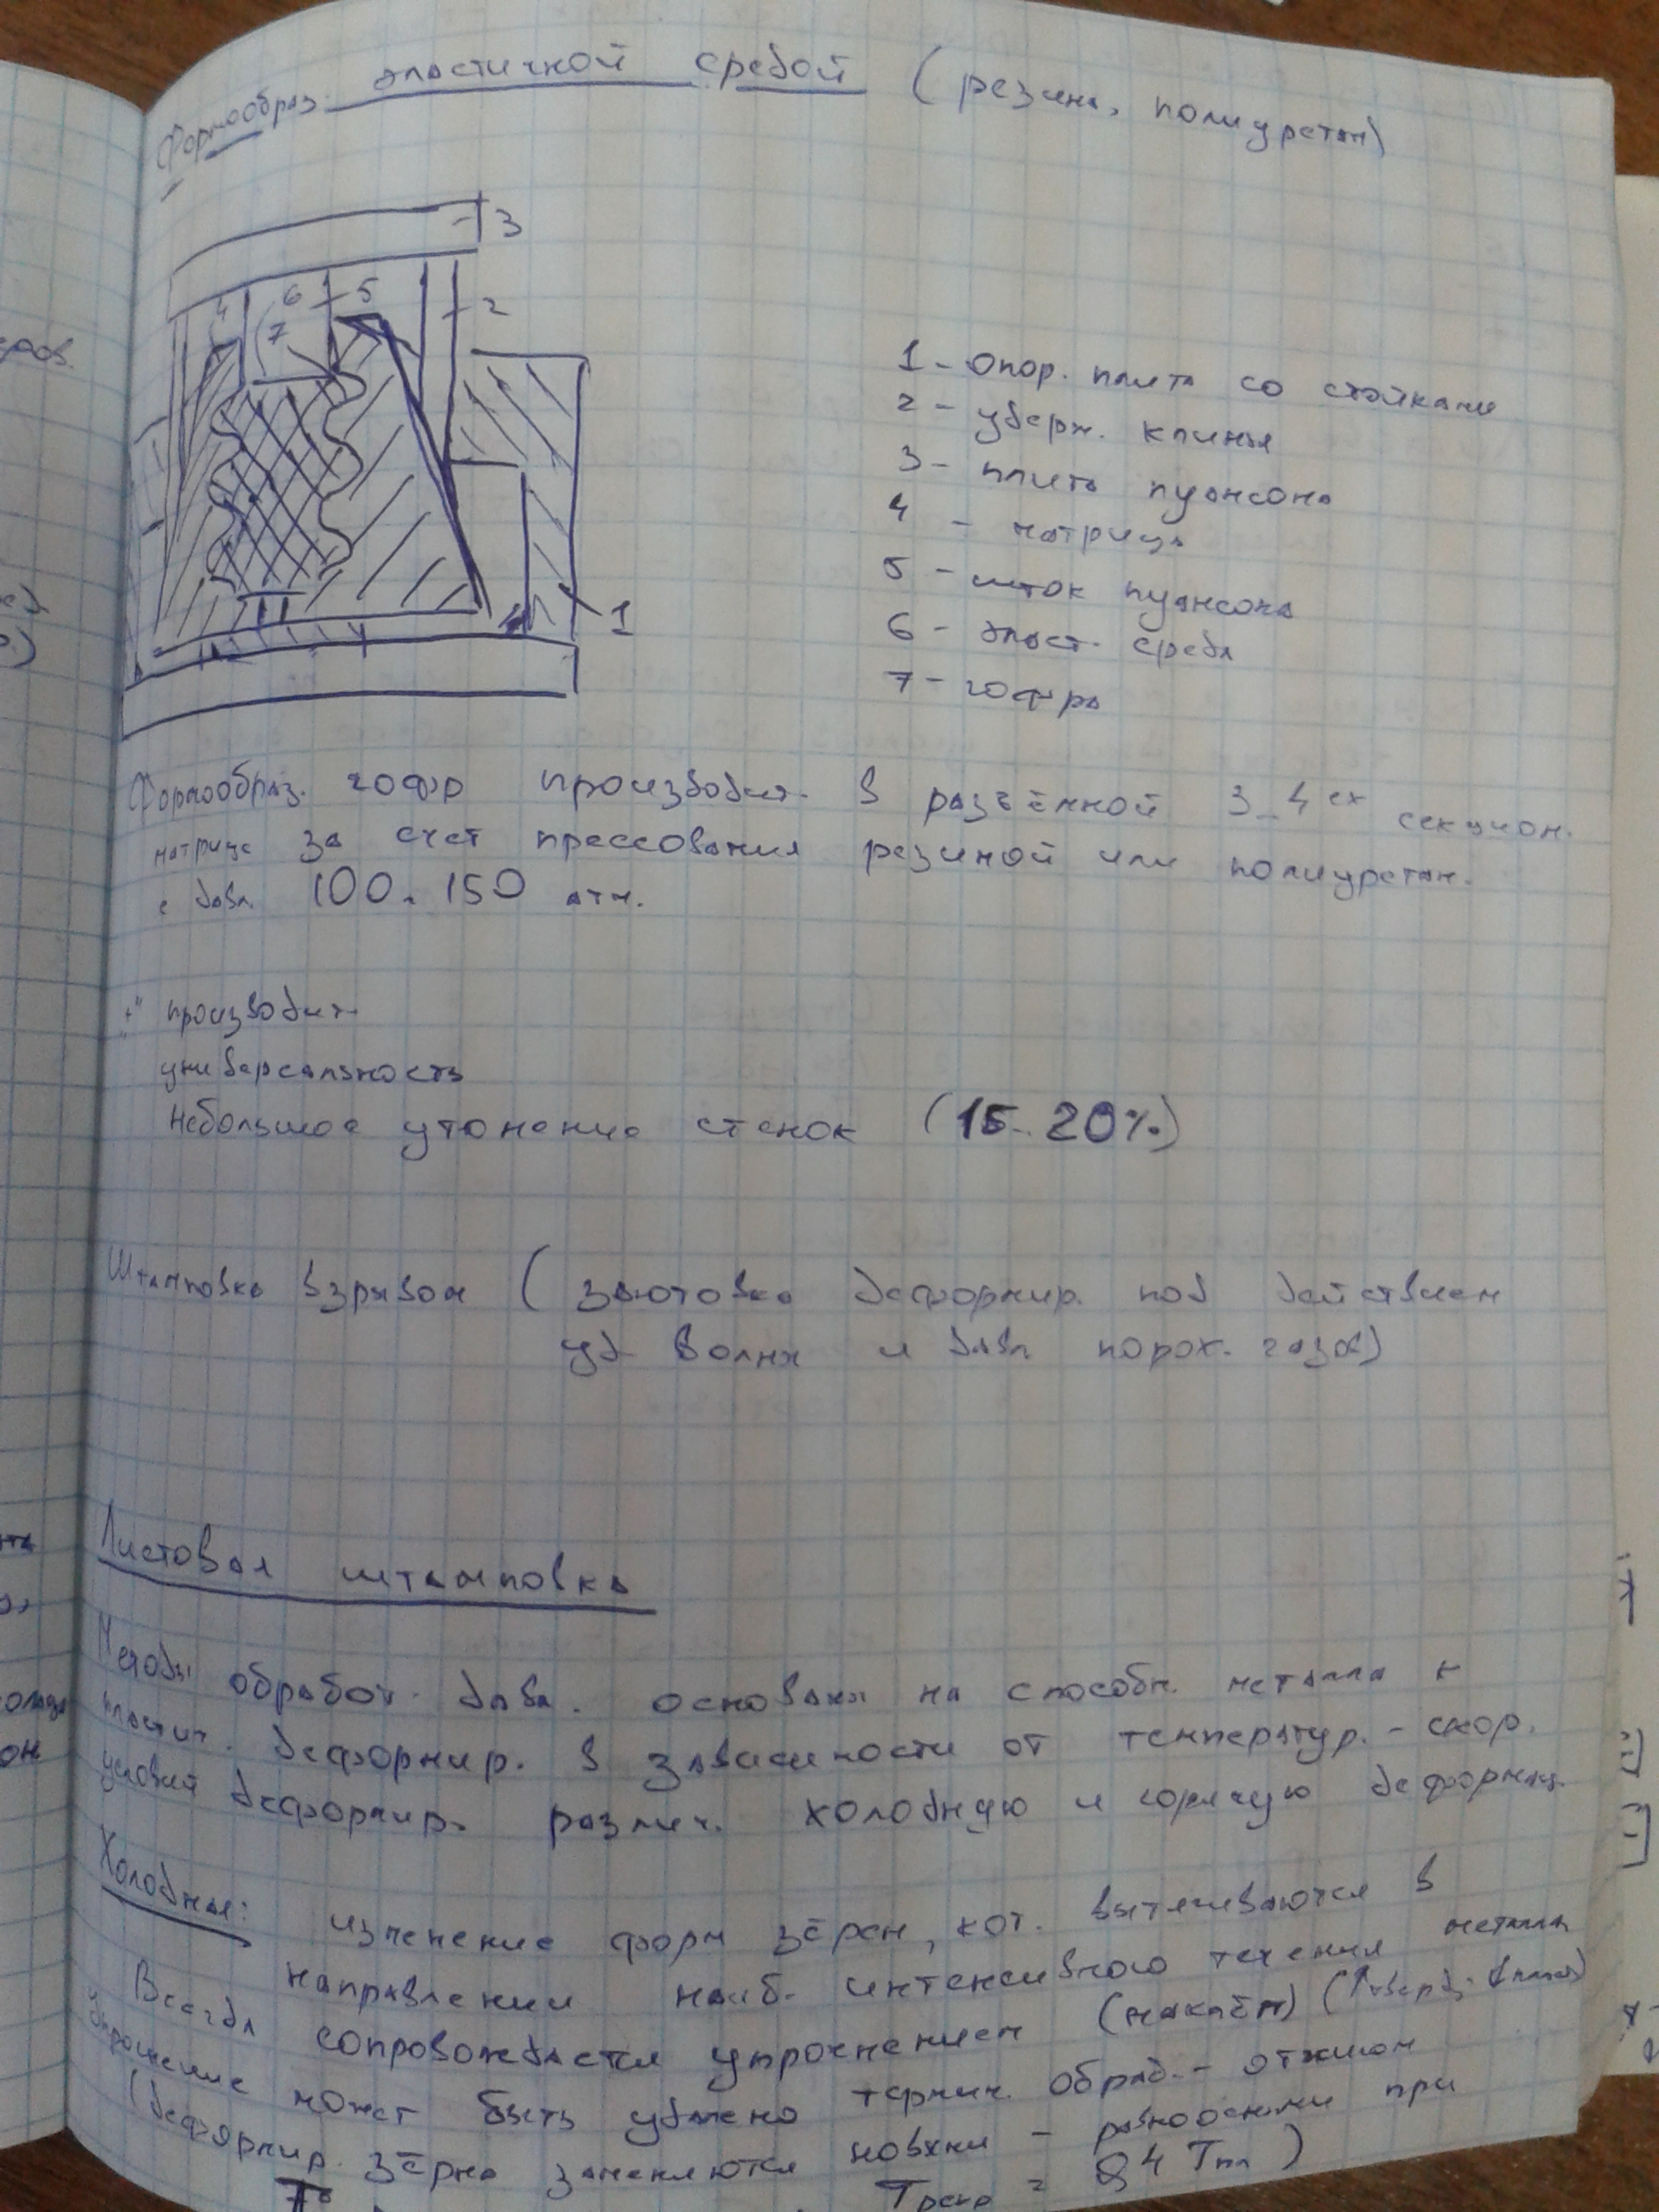 Формообраз. эластичной средой (резина, полиуретан)
3
4 6 5 2
7
1
1 - Опор. плита со стойками
2 - удерж. клинья
3 - плита пуансона
4 - матрица
5 - шток пуансона
6 - эласт. среда
7 - гофра
Формообраз. гофр производит. в разъёмной 3-4ех секцион.
матрице за счет прессования резиной или полиуретан.
с давл. 100-150 атм.
"+" производит.
универсальность
небольшое утонение стенок (15-20%)
Штамповка взрывом (заготовка деформир. под действием
уд волны и давл порох. газов)
Листовая штамповка
Методы обработ. давл. основаны на способн. металла к
пластич. деформир. В зависимости от температур.-скор.
условий деформир. различ. холодную и горячую деформац.
Холодная: изменение форм зёрен, кот. вытягиваются в
направлении наиб. интенсивного течения металла
Всегда сопровождается упрочнением (наклёп)
Упрочнение может быть удалено термич. обраб. - отжигом
(деформир. зёрна заменяются новыми - равноосными при
Tрекр = 0,4 Tпл)